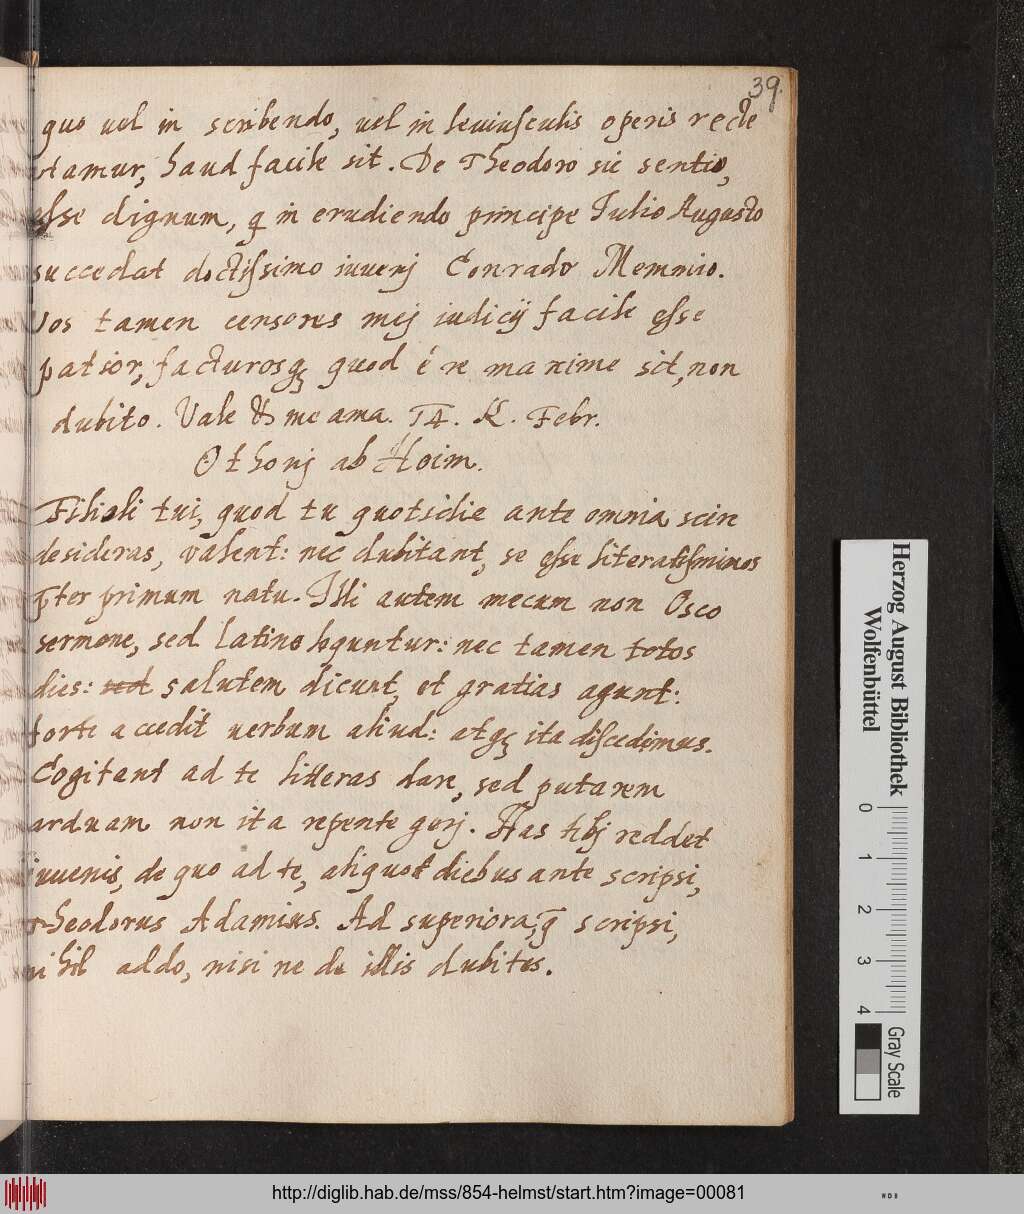 39.
quo uel in scribendo, uel in leviusculis operis recte
utamur, haud facile sit. De Theodoro sic sentio,
esse dignum, q̃ in erudiendo principe Iulio Augusto
succedat doctissimo iuuenj Conrado Memmio.
Vos tamen censores mej iudicij facile esse
patior, facturosq; quod é re maxime sit, non
dubito. Vale & me ama. 14. K. Febr.
Othonj ab Hoim.
Filioli tui, quod tu quotidie ante omnia scire
desideras, valent: nec dubitant, se esse literatissimos
p̃ter primum natu. Illi autem mecum non Osco
sermone, sed Latine loquuntur: nec tamen totos
dies: sed salutem dicunt, et gratias agunt:
forte accedit uerbum aliud: atq; ita discedimus.
Cogitant ad te litteras dare, sed putarem
arduam non ita repente gerj. Has tibj reddet
iuuenis, de quo ad te, aliquot diebus ante scripsi,
Theodorus Adamius. Ad superiora, q̃ scripsi,
nihil addo, nisi ne de illis dubites.
Herzog August Bibliothek
Wolfenbüttel
0 1 2 3 4
Gray Scale
http://diglib.hab.de/mss/854-helmst/start.htm?image=00081
WDB